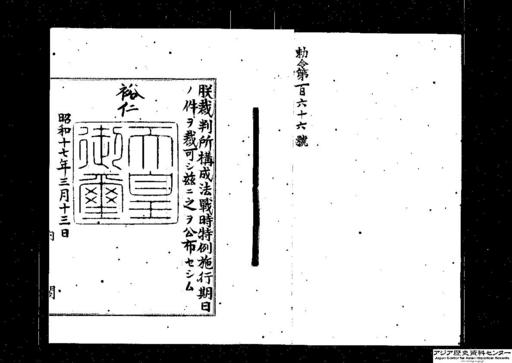 勅令第一百六十六號
朕裁判所構成法戰時特例施行期日
ノ件ヲ裁可シ茲ニ之ヲ公布セシム
裕仁
天皇
御璽
昭和十七年三月十三日
内閣
アジア歴史資料センター
Japan Center for Asian Historical Records